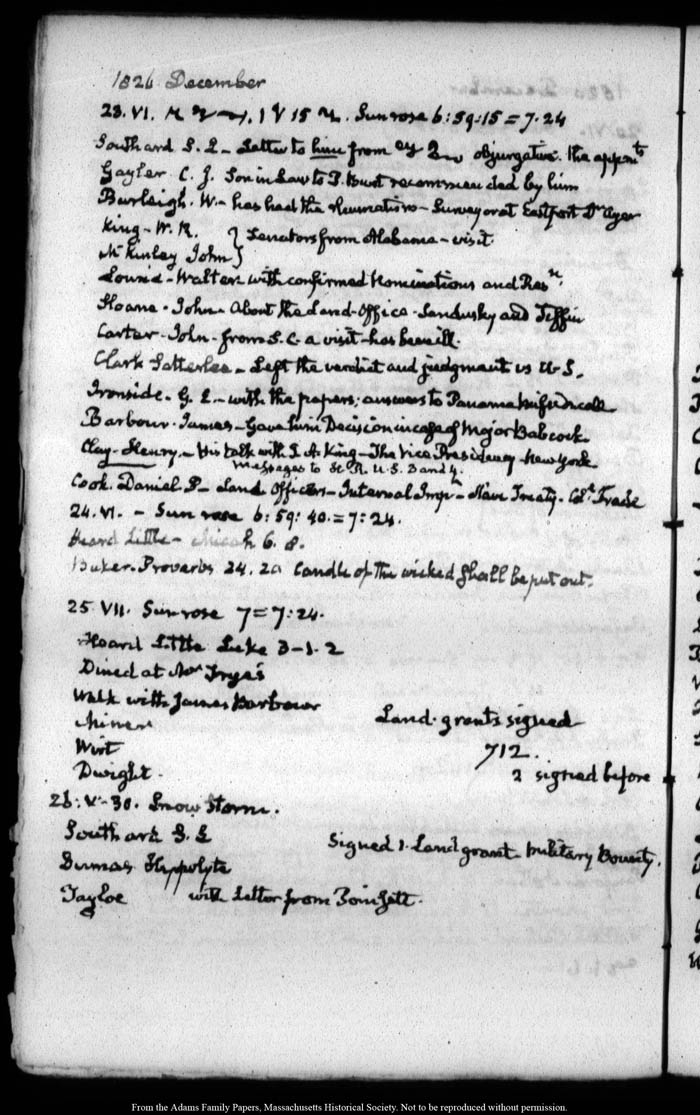 1826 December
23. VI. Sun rose 6:59:15 = 7.24
Southard S. L – Letter to him from objurgation. the appts
Gayler C. J. Son in Law to T. Burt recommended by him
Burleigh. W. – has had the rheumatism – Surveyor at Eastport Dr Ayer
King – W. R. } Senators from Alabama – visit
McKinley John }
Lowrie – Walter with confirmed Nominations and Resn.
Sloane – John – About the Land-Office – Sandusky and Tiffin
Carter – John – from S. C. a visit – has been ill.
Clark Satterlee – Left the verdict and judgment vs U.S.
Ironside – G. E. – with the papers; answers to Panama
Barbour – James – Gave him Decision in case of Major Babcock
Clay – Henry – His talk with J. A. King – The Vice Presidency – New York
Messages to H. R. U.S. 3 and 4.
Cook. Daniel P – Land Officers – Internal Impt – Slave Treaty – Coll. Trade
24. VI. – Sun rose 6:59:40. = 7:24.
Heard Little – Micah 6. 8.
Baker. Proverbs 24. 20 Candle of the wicked shall be put out.
25 VII. Sun rose 7 = 7:24.
Heard Little Luke 3–1. 2
Dined at Mrs Frye's
Walk with James Barbour
Miner
Land grants signed
Wirt
712.
Dwight.
2 signed before
26: V–30. Snow Storm.
Southard S. L
Signed 1. Land grant – Military Bounty.
Dumas Hyppolyte
Tayloe with Letter from Poinsett.
From the Adams Family Papers, Massachusetts Historical Society. Not to be reproduced without permission.